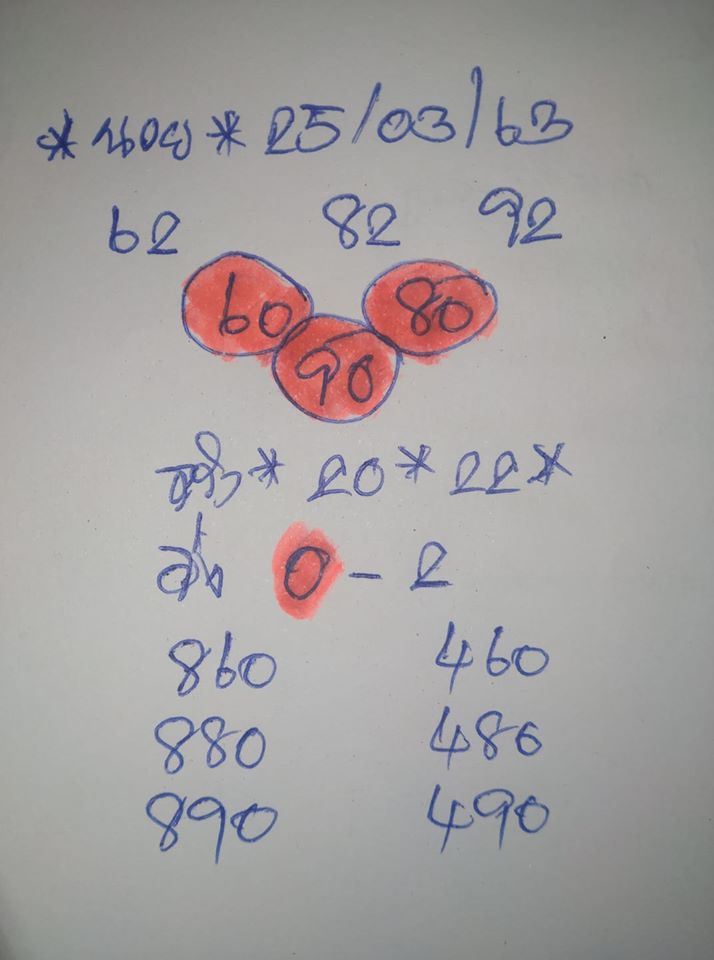 *นอย* 25/03/63
62 82 92
60 80
90
* 20 * 22 *
0 - 2
860 460
880 480
890 490